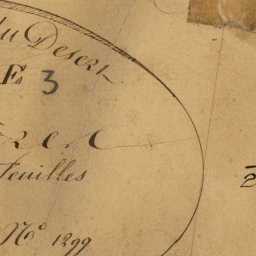 du Desert
E. 3
feuilles
2
Nº 1299